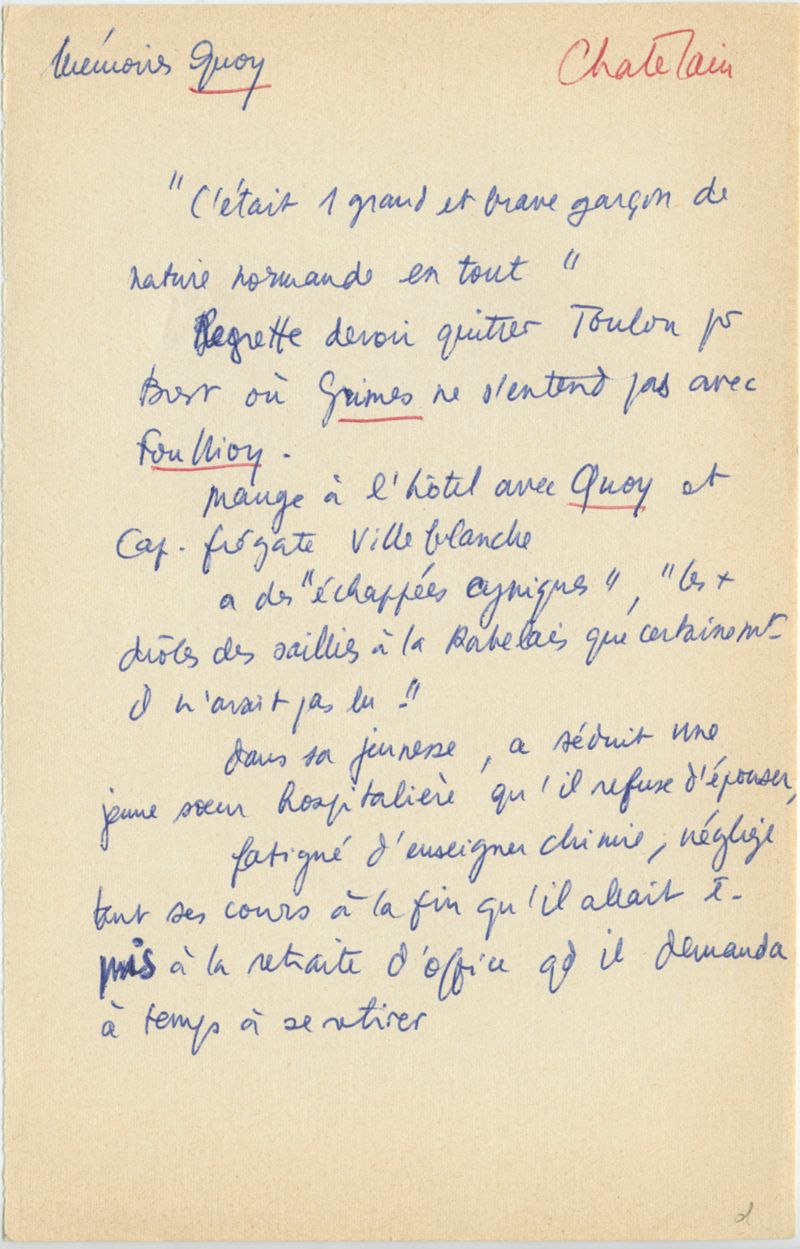 Mémoires Quoy
Chatelain
"C'était 1 grand et brave garçon de
nature normande en tout"
Regrette devoir quitter Toulon pr
Brest où Grimes ne s'entend pas avec
Foullioy.
mange à l'hôtel avec Quoy et
Cap. frégate Villeblanche
a des "échappées cyniques", "les +
drôles des saillies à la Rabelais que certainemt
il n'avait pas lu."
dans sa jeunesse, a séduit une
jeune sœur hospitalière qu'il refuse d'épouser,
fatigué d'enseigner chimie, néglige
tant ses cours à la fin qu'il allait ê.
mis à la retraite d'office qd il demanda
à temps à se retirer